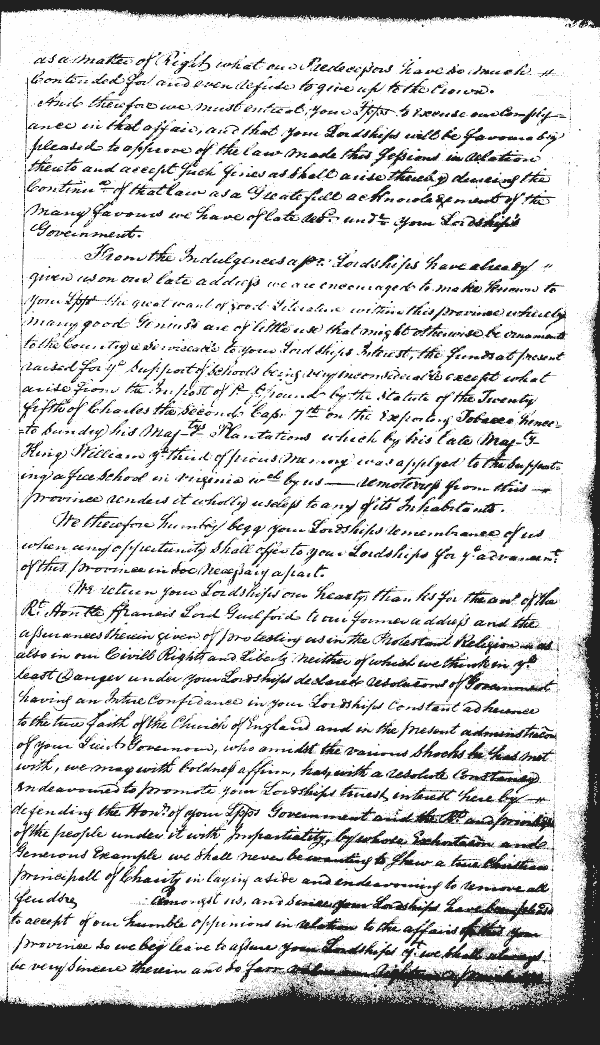 as a matter of Right what our Predecessors have so much "
Contended for and even refuse to give up to the Crown.
And therefore we must entreat your Lpps to Excuse our Comply=
ance in that affair, and that your Lordships will be favourably
pleased to approve of the law made this Sessions in relation
thereto and accept such fines as shall arise thereby deeming the
Continu.ce of that law as a Greatefull acknowledgement of the
many favours we have of late und.r your Lordships
Government.
From the Indulgences yo.r Lordships have already "
given us on our late address we are encouraged to make known to
your Lpps the great want of good Literature within this province whereby
many good Genius's are of little use that might otherwise be ornaments
to the Country & Serviceable to your Lordships Interest, the funds at present
raised for y.e Support of Schools being very inconsiderable except what
arise from the Impost of 1.d P pound by the Statute of the Twenty
fifth of Charles the Second Cap.r 7.th on the Exporting Tobacco hence
to Sundry his Maj.tys Plantations which by his late Maj.ty
King William y.e third of pious Memory was applyed to the Support=
ing a free School in Virginia w.ch by its — remoteness from this —
province renders it wholly useless to any of its Inhabitants.
We therefore humbly begg your Lordships remembrance of us
when any opportunity shall offer to your Lordships for y.e advancem.t
of this province in soe necessary a part.
We return your Lordships our hearty thanks for the answ.r of the
R.t Hon.ble ffrancis Lord Guilford to our former address and the
assurances therein given of protecting us in the Protestant Religion as
also in our Civill Rights and Liberty neither of which we think in y.e
least Danger under your Lordships declared resolutions of Government
having an Intire Confidance in your Lordships Constant adherence
to the true faith of the Church of England and in the present administration
of your Lieut.t Governour, who amidst the various Shocks he has met
with, we may with boldness affirm, has, with a resolute Constancy
endeavoured to promote your Lordships truest interest here by "
defending the Hon.r of your Lpps Government and the R.ts and priviledges
of the people under it with Impartiality, by whose Exhortation and
Generous Example we shall never be wanting to shew a true Christian
principall of Charity in laying aside and endeavouring to remove all
feudes amongst us, and since your Lordships have been pleased
to accept of our humble oppinions in relation to the affairs of this your
province so we beg leave to assure your Lordships y.t we shall always
be very Sincere therein and so far